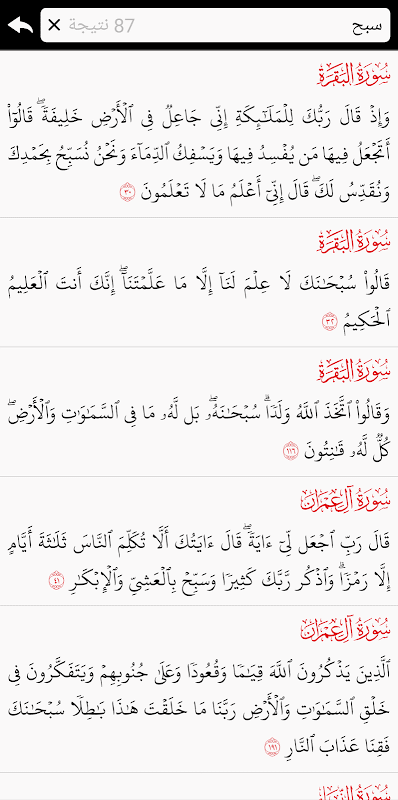 سبح
87 نتيجة
سُورَةُ البَقَرَةِ
وَإِذْ قَالَ رَبُّكَ لِلْمَلَٰٓئِكَةِ إِنِّى جَاعِلٌ فِى ٱلْأَرْضِ خَلِيفَةً ۖ قَالُوٓا۟
أَتَجْعَلُ فِيهَا مَن يُفْسِدُ فِيهَا وَيَسْفِكُ ٱلدِّمَآءَ وَنَحْنُ نُسَبِّحُ بِحَمْدِكَ
وَنُقَدِّسُ لَكَ ۖ قَالَ إِنِّىٓ أَعْلَمُ مَا لَا تَعْلَمُونَ ٣٠
سُورَةُ البَقَرَةِ
قَالُوا۟ سُبْحَٰنَكَ لَا عِلْمَ لَنَآ إِلَّا مَا عَلَّمْتَنَآ ۖ إِنَّكَ أَنتَ ٱلْعَلِيمُ
ٱلْحَكِيمُ ٣٢
سُورَةُ البَقَرَةِ
وَقَالُوا۟ ٱتَّخَذَ ٱللَّهُ وَلَدًا ۗ سُبْحَٰنَهُۥ ۖ بَل لَّهُۥ مَا فِى ٱلسَّمَٰوَٰتِ وَٱلْأَرْضِ ۖ
كُلٌّ لَّهُۥ قَٰنِتُونَ ١١٦
سُورَةُ آلِ عِمْرَانَ
قَالَ رَبِّ ٱجْعَل لِّىٓ ءَايَةً ۖ قَالَ ءَايَتُكَ أَلَّا تُكَلِّمَ ٱلنَّاسَ ثَلَٰثَةَ أَيَّامٍ
إِلَّا رَمْزًا ۗ وَٱذْكُر رَّبَّكَ كَثِيرًا وَسَبِّحْ بِٱلْعَشِىِّ وَٱلْإِبْكَٰرِ ٤١
سُورَةُ آلِ عِمْرَانَ
ٱلَّذِينَ يَذْكُرُونَ ٱللَّهَ قِيَٰمًا وَقُعُودًا وَعَلَىٰ جُنُوبِهِمْ وَيَتَفَكَّرُونَ فِى
خَلْقِ ٱلسَّمَٰوَٰتِ وَٱلْأَرْضِ رَبَّنَا مَا خَلَقْتَ هَٰذَا بَٰطِلًا سُبْحَٰنَكَ
فَقِنَا عَذَابَ ٱلنَّارِ ١٩١